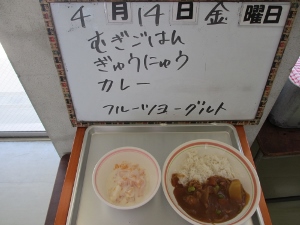 4月14日金曜日
むぎごはん
ぎゅうにゅう
カレー
フルーツヨーグルト